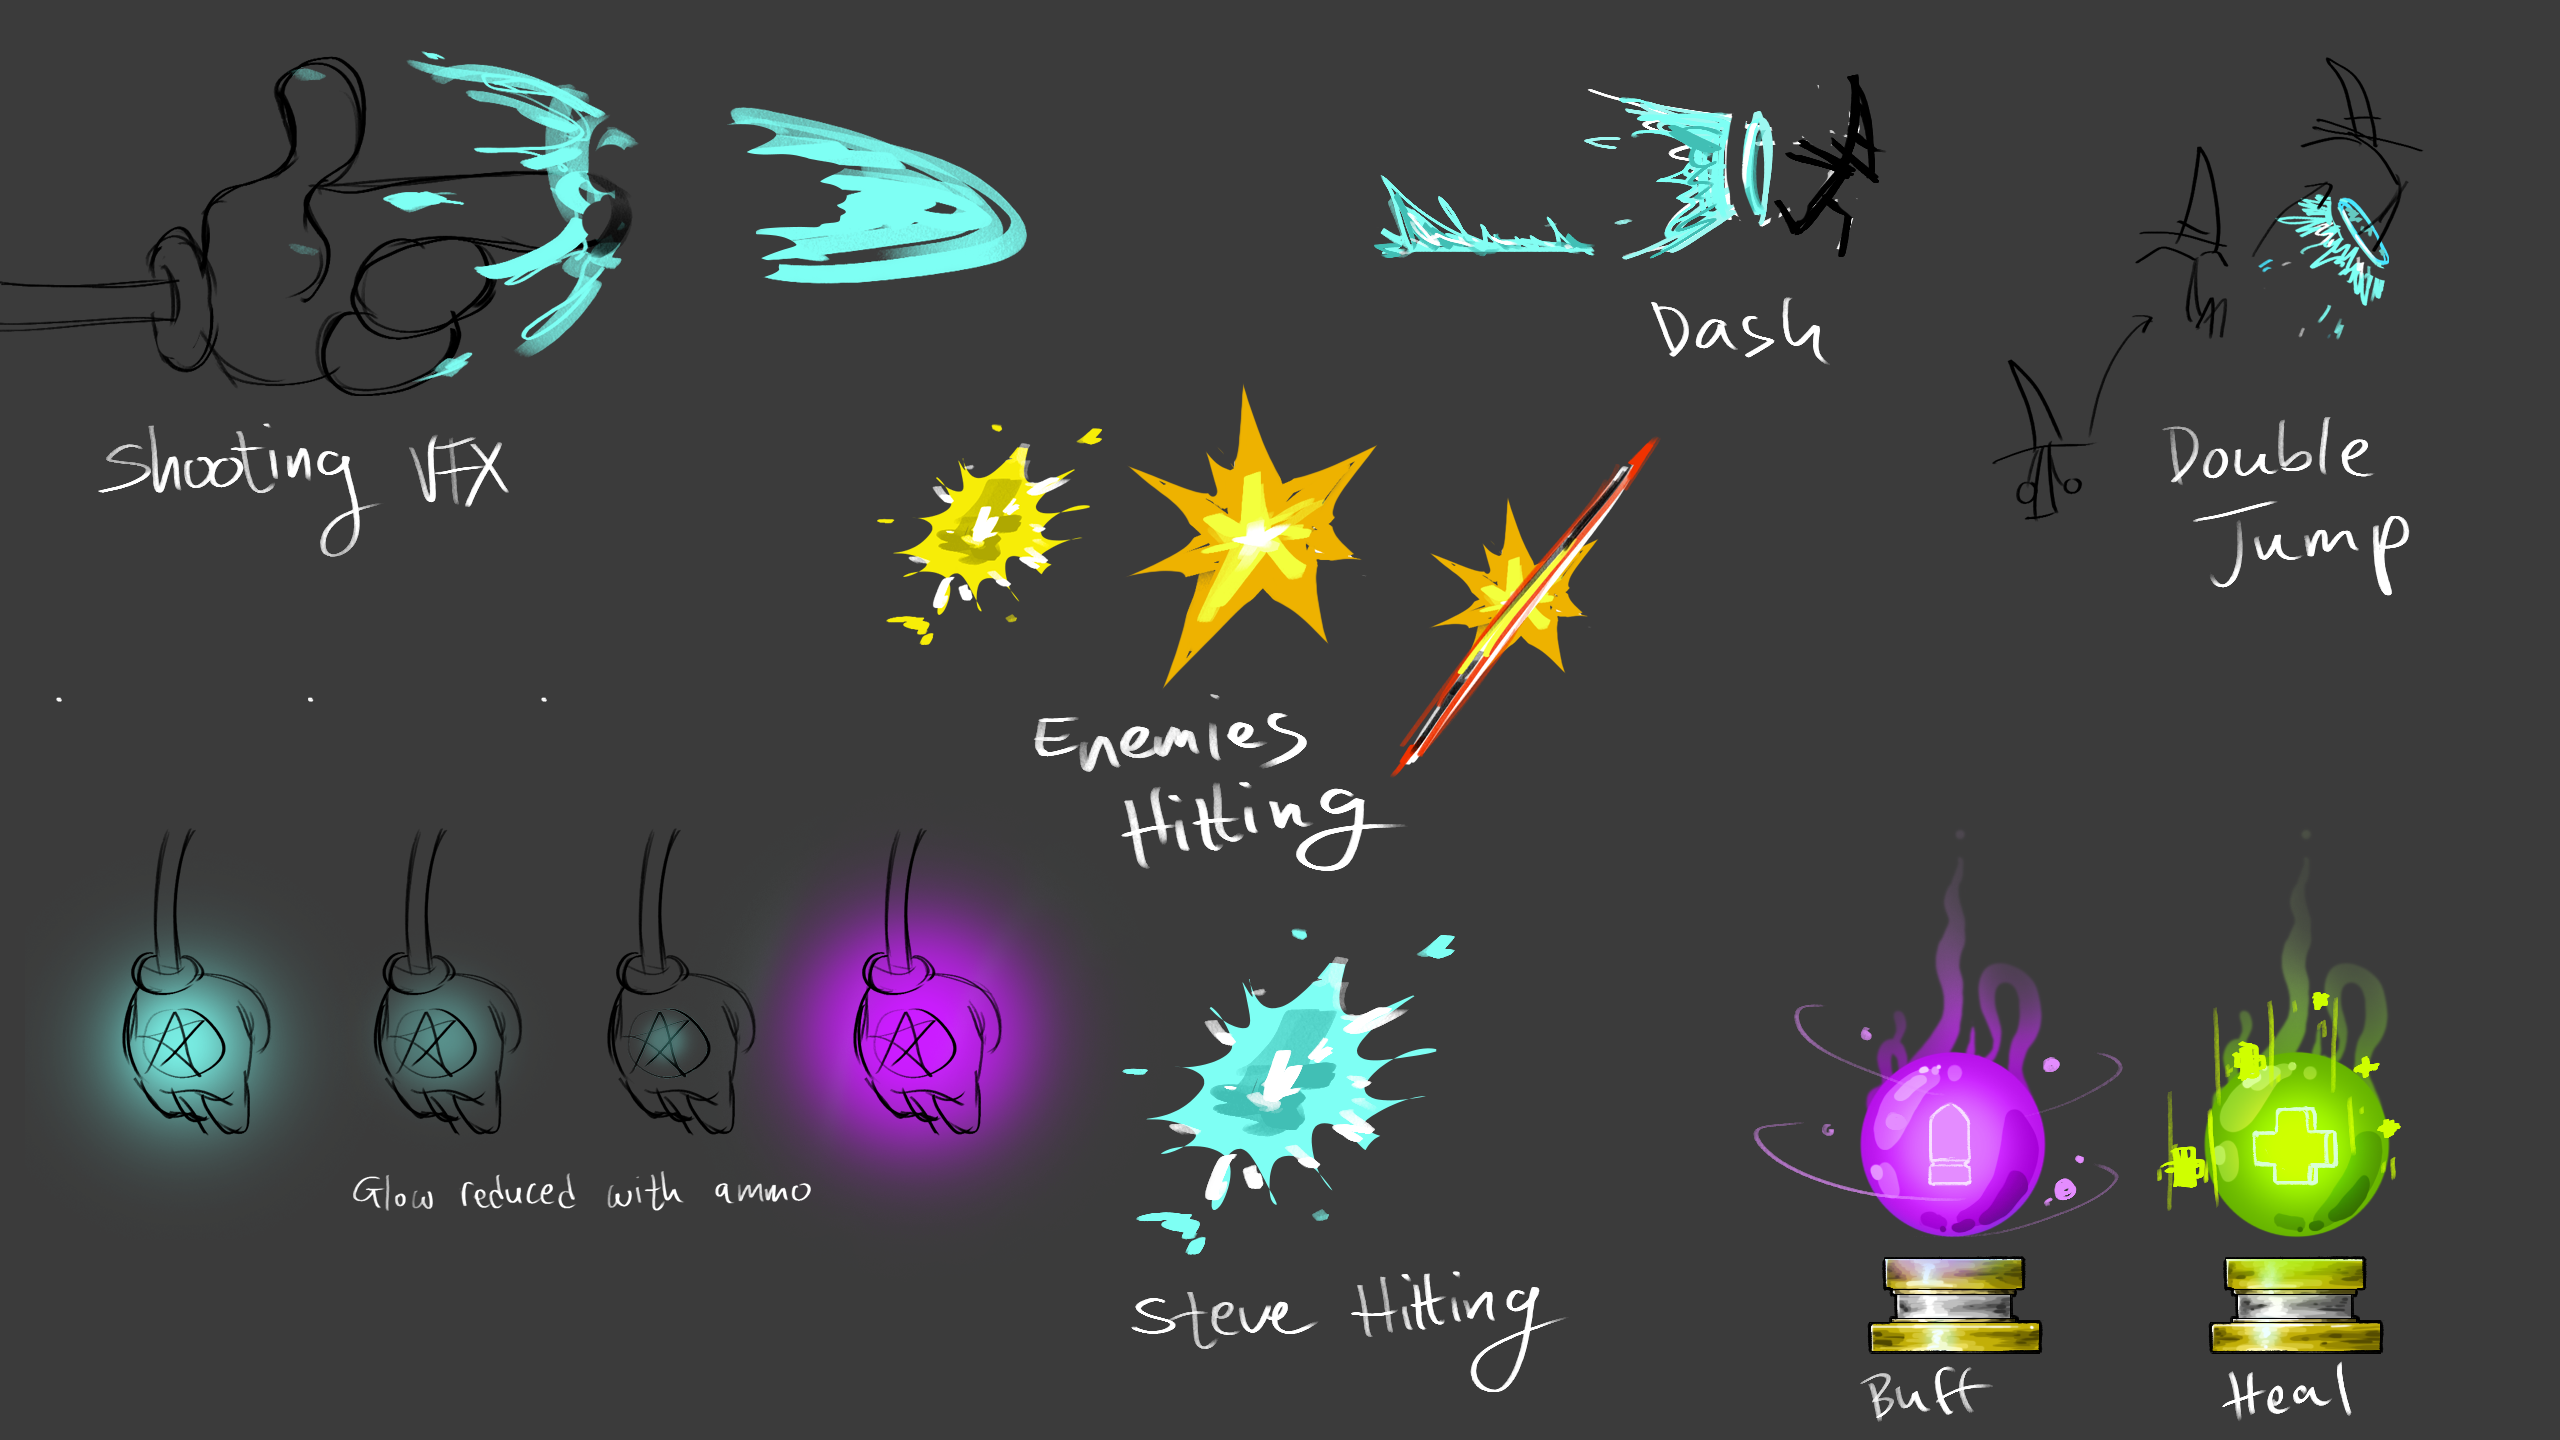 Dash
Shooting VFX
Double
Jump
Enemies
Hitting
Glow reduced with ammo
Steve Hitting
Buff
Heal